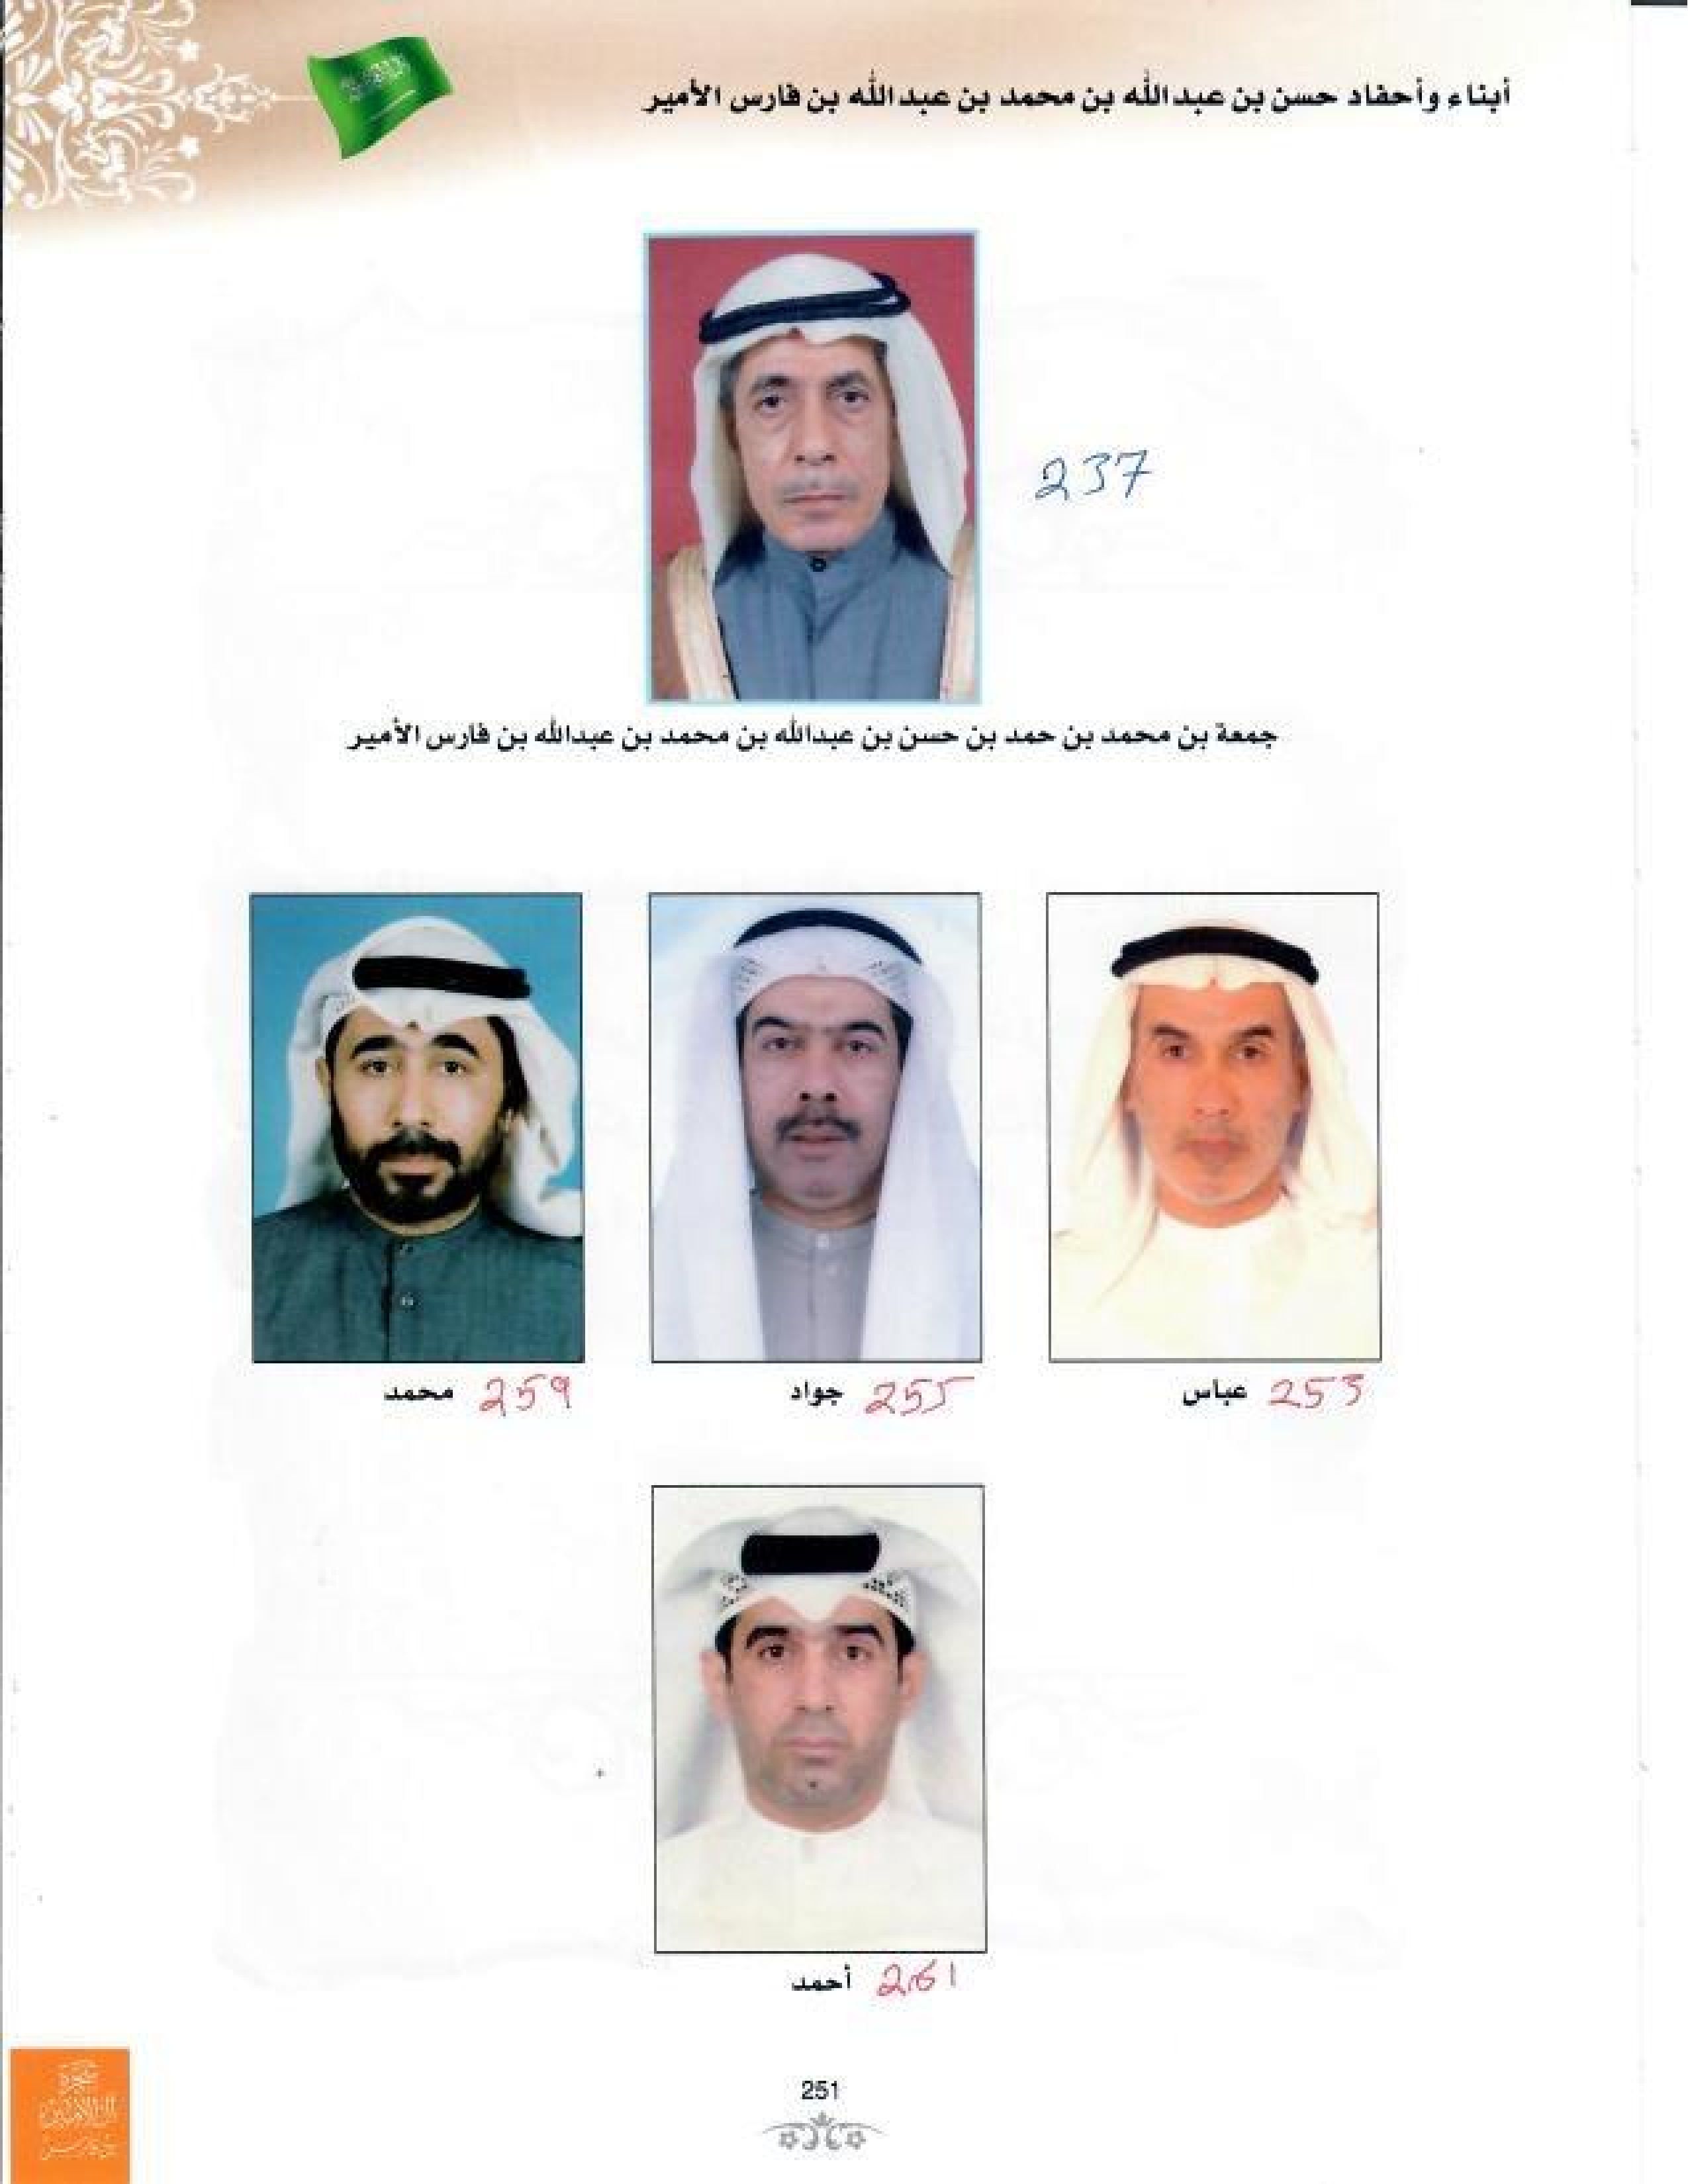 أبناء وأحفاد حسن بن عبدالله بن محمد بن عبدالله بن فارس الأمير
237
جمعة بن محمد بن حمد بن حسن بن عبدالله بن محمد بن عبدالله بن فارس الأمير
253 عباس
255 جواد
259 محمد
261 أحمد
251
شجرة